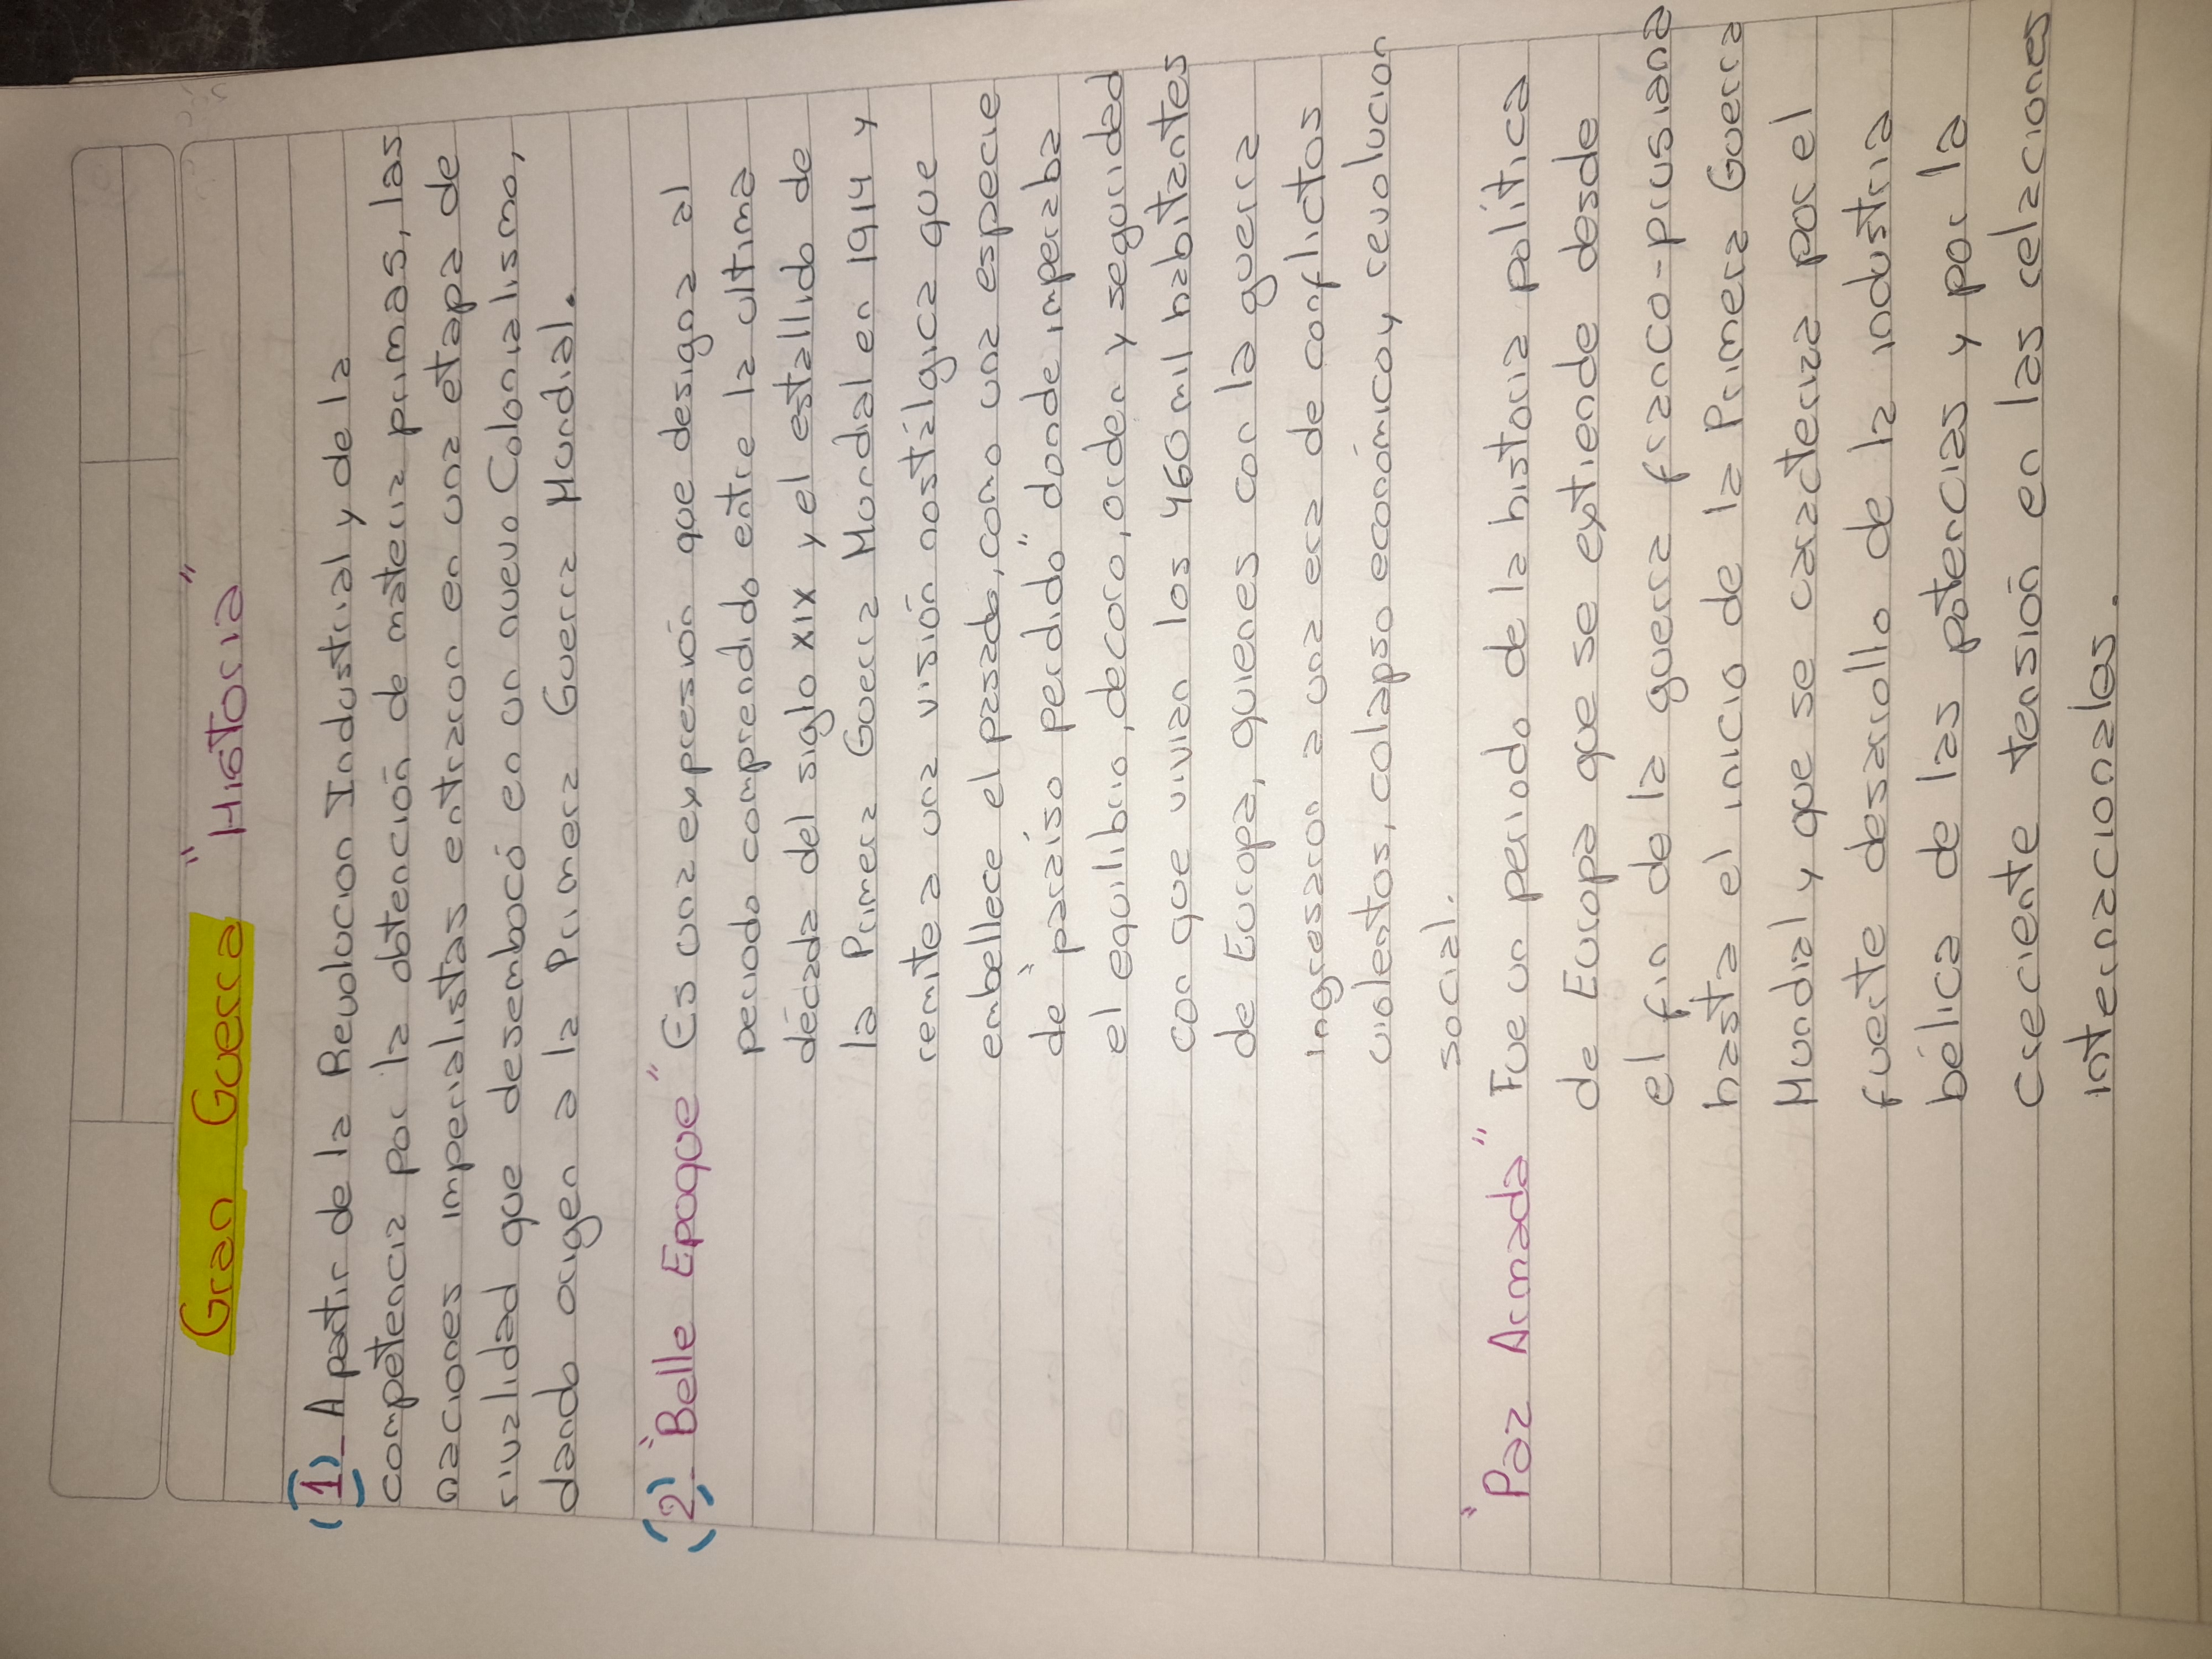 Gran Guerra "Historia"
(1)_ A partir de la Revolucion Industrial y de la
competencia por la obtención de materia primas, las
naciones imperialistas entraron en una etapa de
rivalidad que desembocó en un nuevo Colonialismo,
dando origen a la Primera Guerra Mundial.
(2)_ "Belle Epoque" Es una expresión que designa al
periodo comprendido entre la ultima
década del siglo XIX y el estallido de
la Primera Guerra Mundial en 1914 y
remite a una visión nostálgica que
embellece el pasado, como una especie
de "paraíso perdido" donde imperaba
el equilibrio, decoro, orden y seguridad
con que vivian los 460 mil habitantes
de Europa, quienes con la guerra
ingresaron a una era de conflictos
violentos, colapso económico y revolucion
social.
"Paz Armada" Fue un periodo de la historia política
de Europa que se extiende desde
el fin de la guerra franco-prusiana
hasta el inicio de la Primera Guerra
Mundial y que se caracteriza por el
fuerte desarollo de la industria
bélica de las potencias y por la
creciente tensión en las relaciones
internacionales.